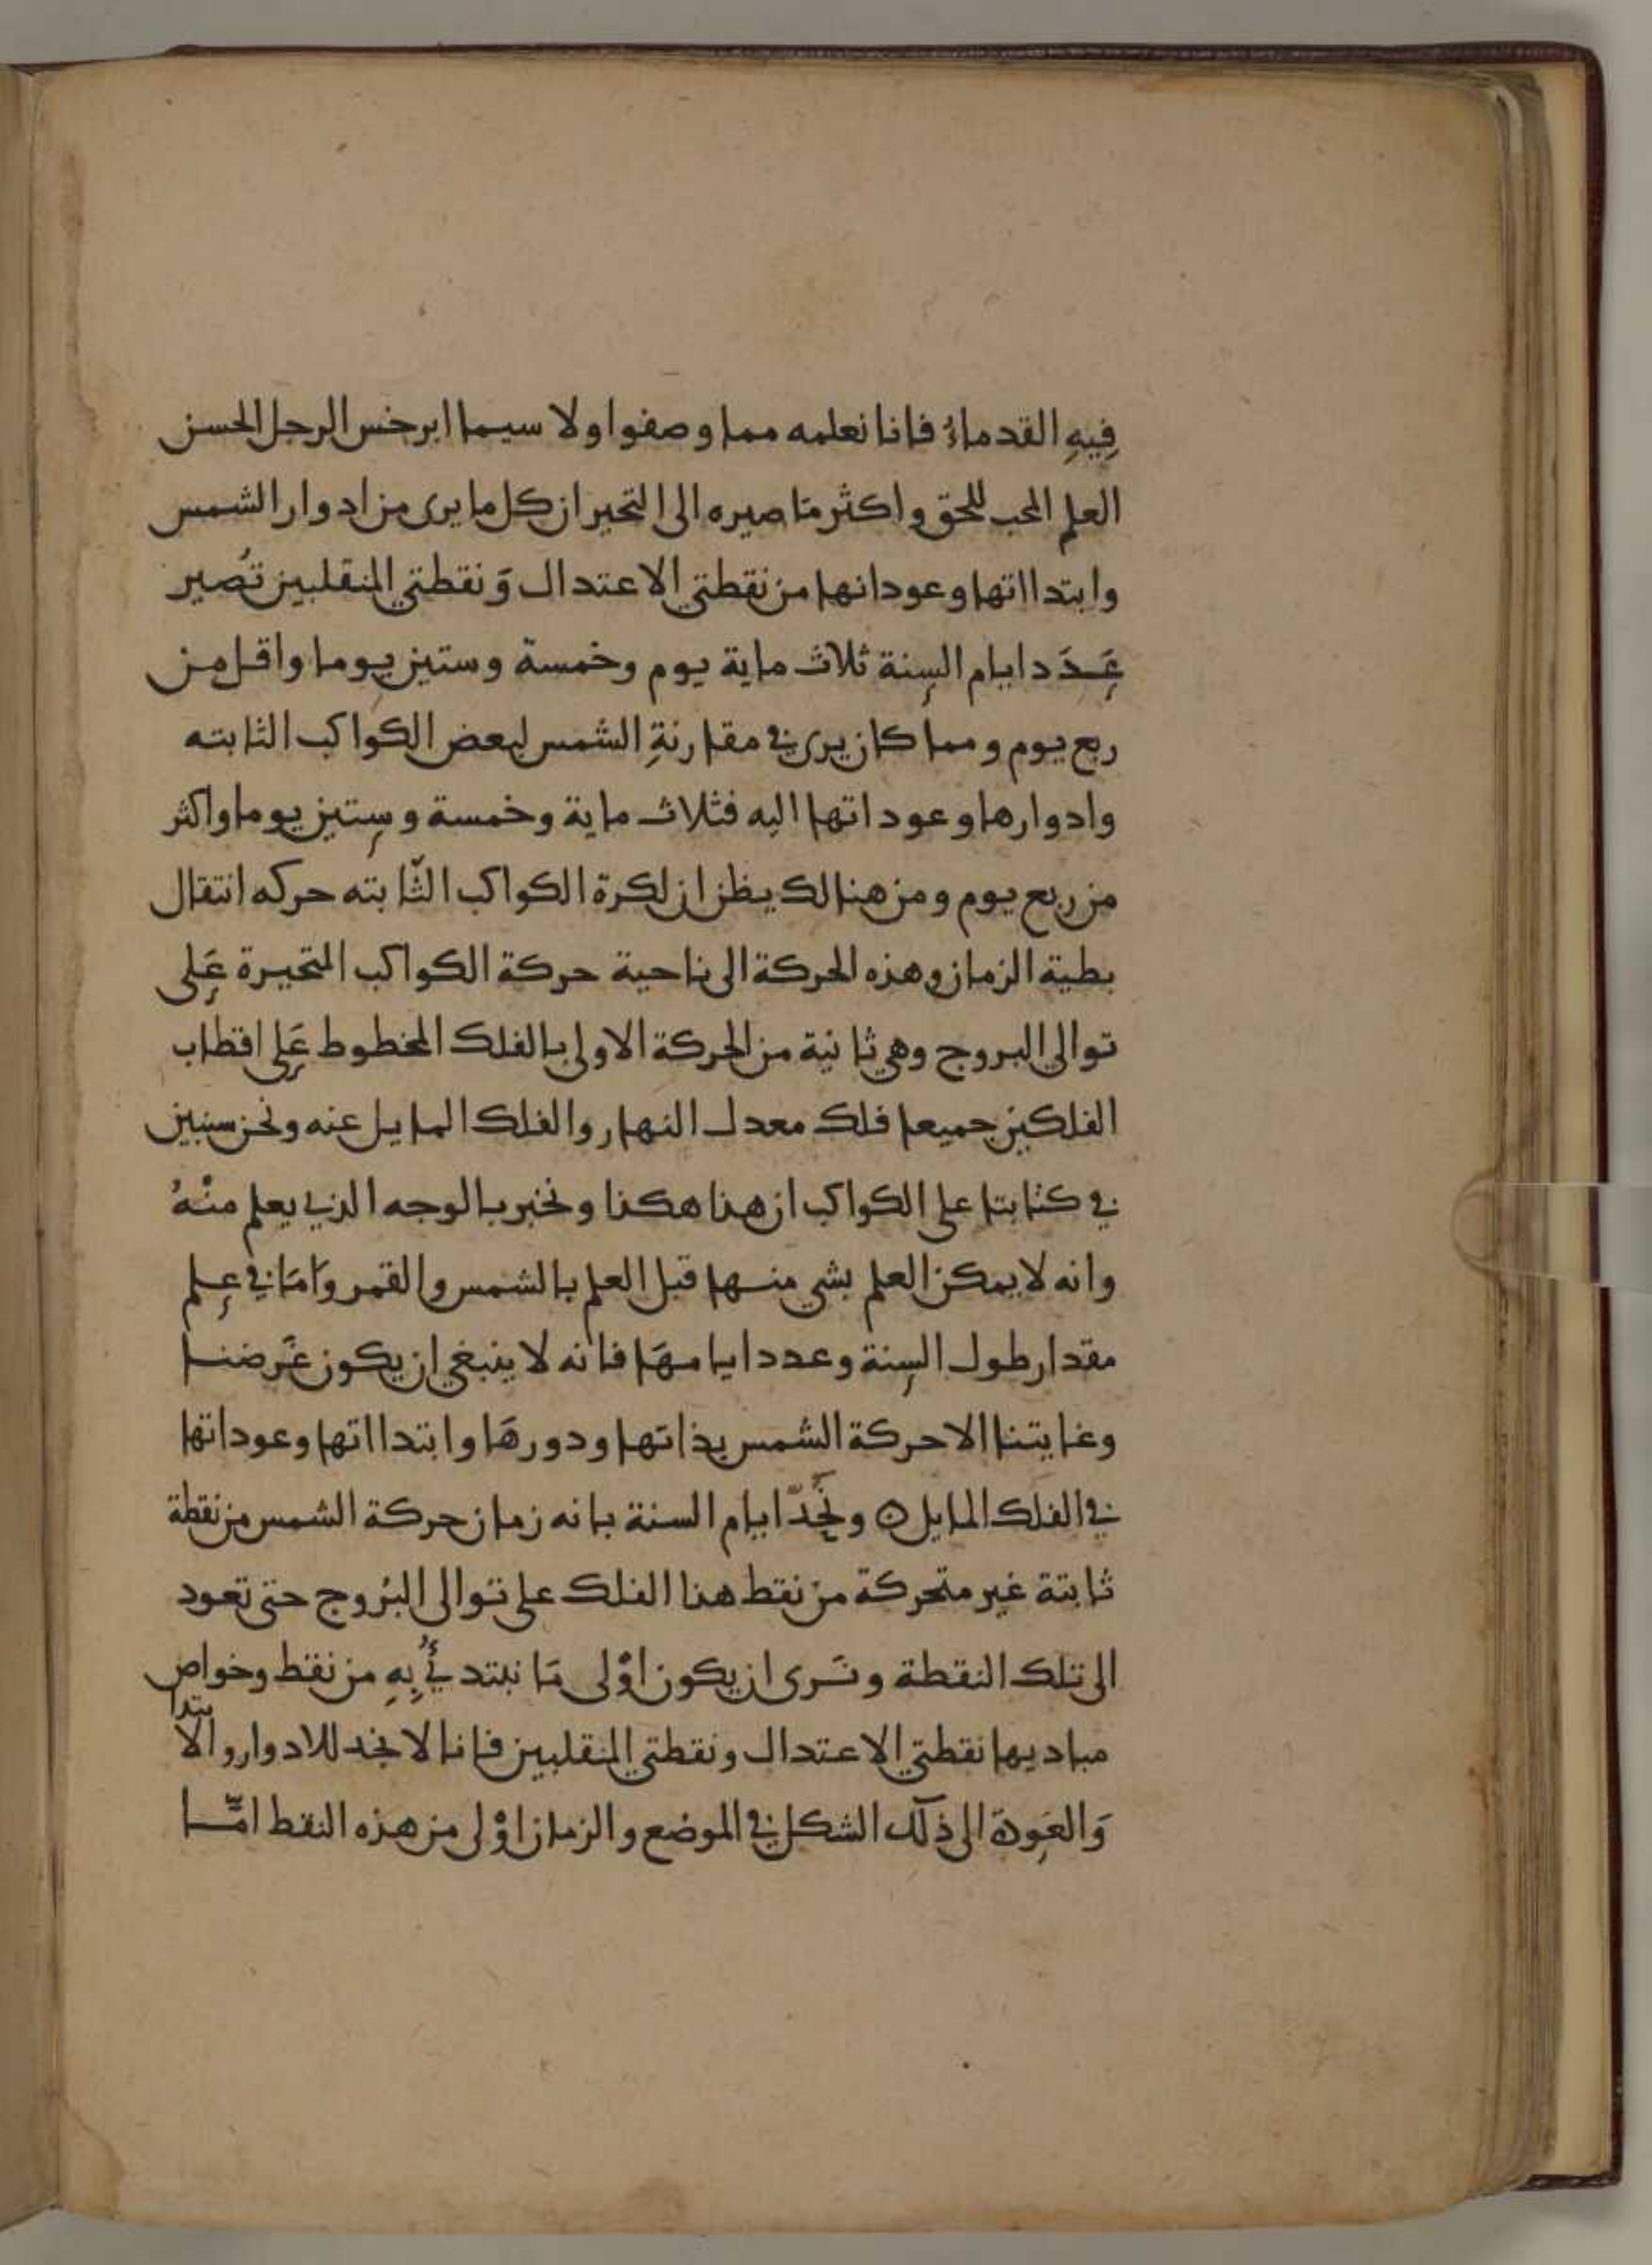 فِيهِ القدماءُ فانا نعلمه مما وصفوا ولا سيما ابرخس الرجل الحسن
العلم المحب للحق واكثر مَا صيره الى التحير ان كل ما يرى من ادوار الشمس
وابتدااتها وعوداتها من نقطتي الاعتدال وَنقطتي المنقلبين تُصير
عَدَد ايام السنة ثلاث ماية يوم وخمسة وستين يوما واقل من
ربع يوم ومما كان يرى في مقارنةِ الشمس لبعض الكواكب الثابته
وادوارها وعوداتها اليه فثلاث ماية وخمسة وستين يوما واكثر
من ربع يوم ومن هنالك يظن ان لكرة الكواكب الثّابته حركه انتقال
بطية الزمان وهذه الحركة الى ناحية حركة الكواكب المتحيرة عَلى
توالي البروج وهي ثانية من الحركة الاولى بالفلك المخطوط عَلى اقطاب
الفلكين جميعا فلك معدل النهار والفلك المايل عنه ونحن سنبين
في كتابتا على الكواكب ان هذا هكذا ونخبر بالوجه الذي يعلم منْهُ
وانه لا يمكن العلم بشي منها قبل العلم بالشمس والقمر وَامَا في عِلم
مقدار طول السنة وعدد ايامهَا فانه لا ينبغي ان يكون غَرضنا
وغايتنا الا حركة الشمس بذاتها ودورهَا وابتدااتها وعوداتها
في الفلك المايل ۞ ونَحُدّ ايام السنة بانه زمان حركة الشمس من نقطة
ثابتة غير متحركة من نقط هذا الفلك على توالى البُروج حتى تعود
الى تلك النقطة ونَرى ان يكون اوْلى مَا نبتدئُ بِهِ من نقط وخواص
مباديها نقطتي الاعتدال ونقطتي المنقلبين فانا لا نجد للادوار والابتدا
وَالعَودة الى ذلك الشكل في الموضع والزمان اوْلى من هذه النقط امَّا